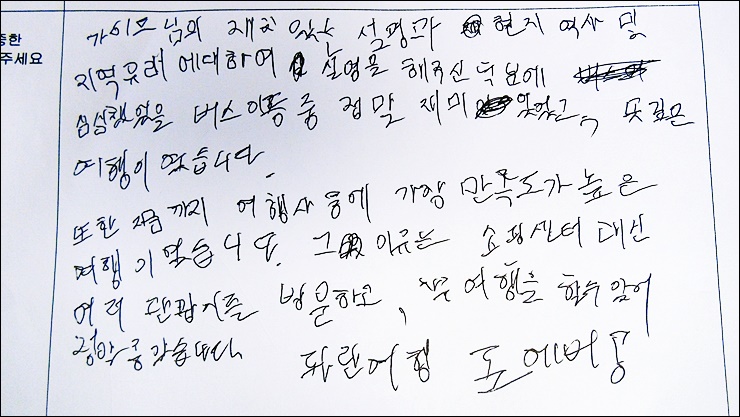 중한
주세요
가이드님의 재치 있는 설명과 현지 역사 및
지역유래에 대하여 설명을 해주신 덕분에
심심했었을 버스이동 중 정말 재미 있었고, 뜻깊은
여행이 었습니다.
또한 지금까지 여행사 중에 가장 만족도가 높은
여행 이 었습니다. 그 이유는 쇼핑센터 대신
여러 관광지를 방문하고, 여행을 할수 있어
정말 좋았습니다 파란여행 포에버